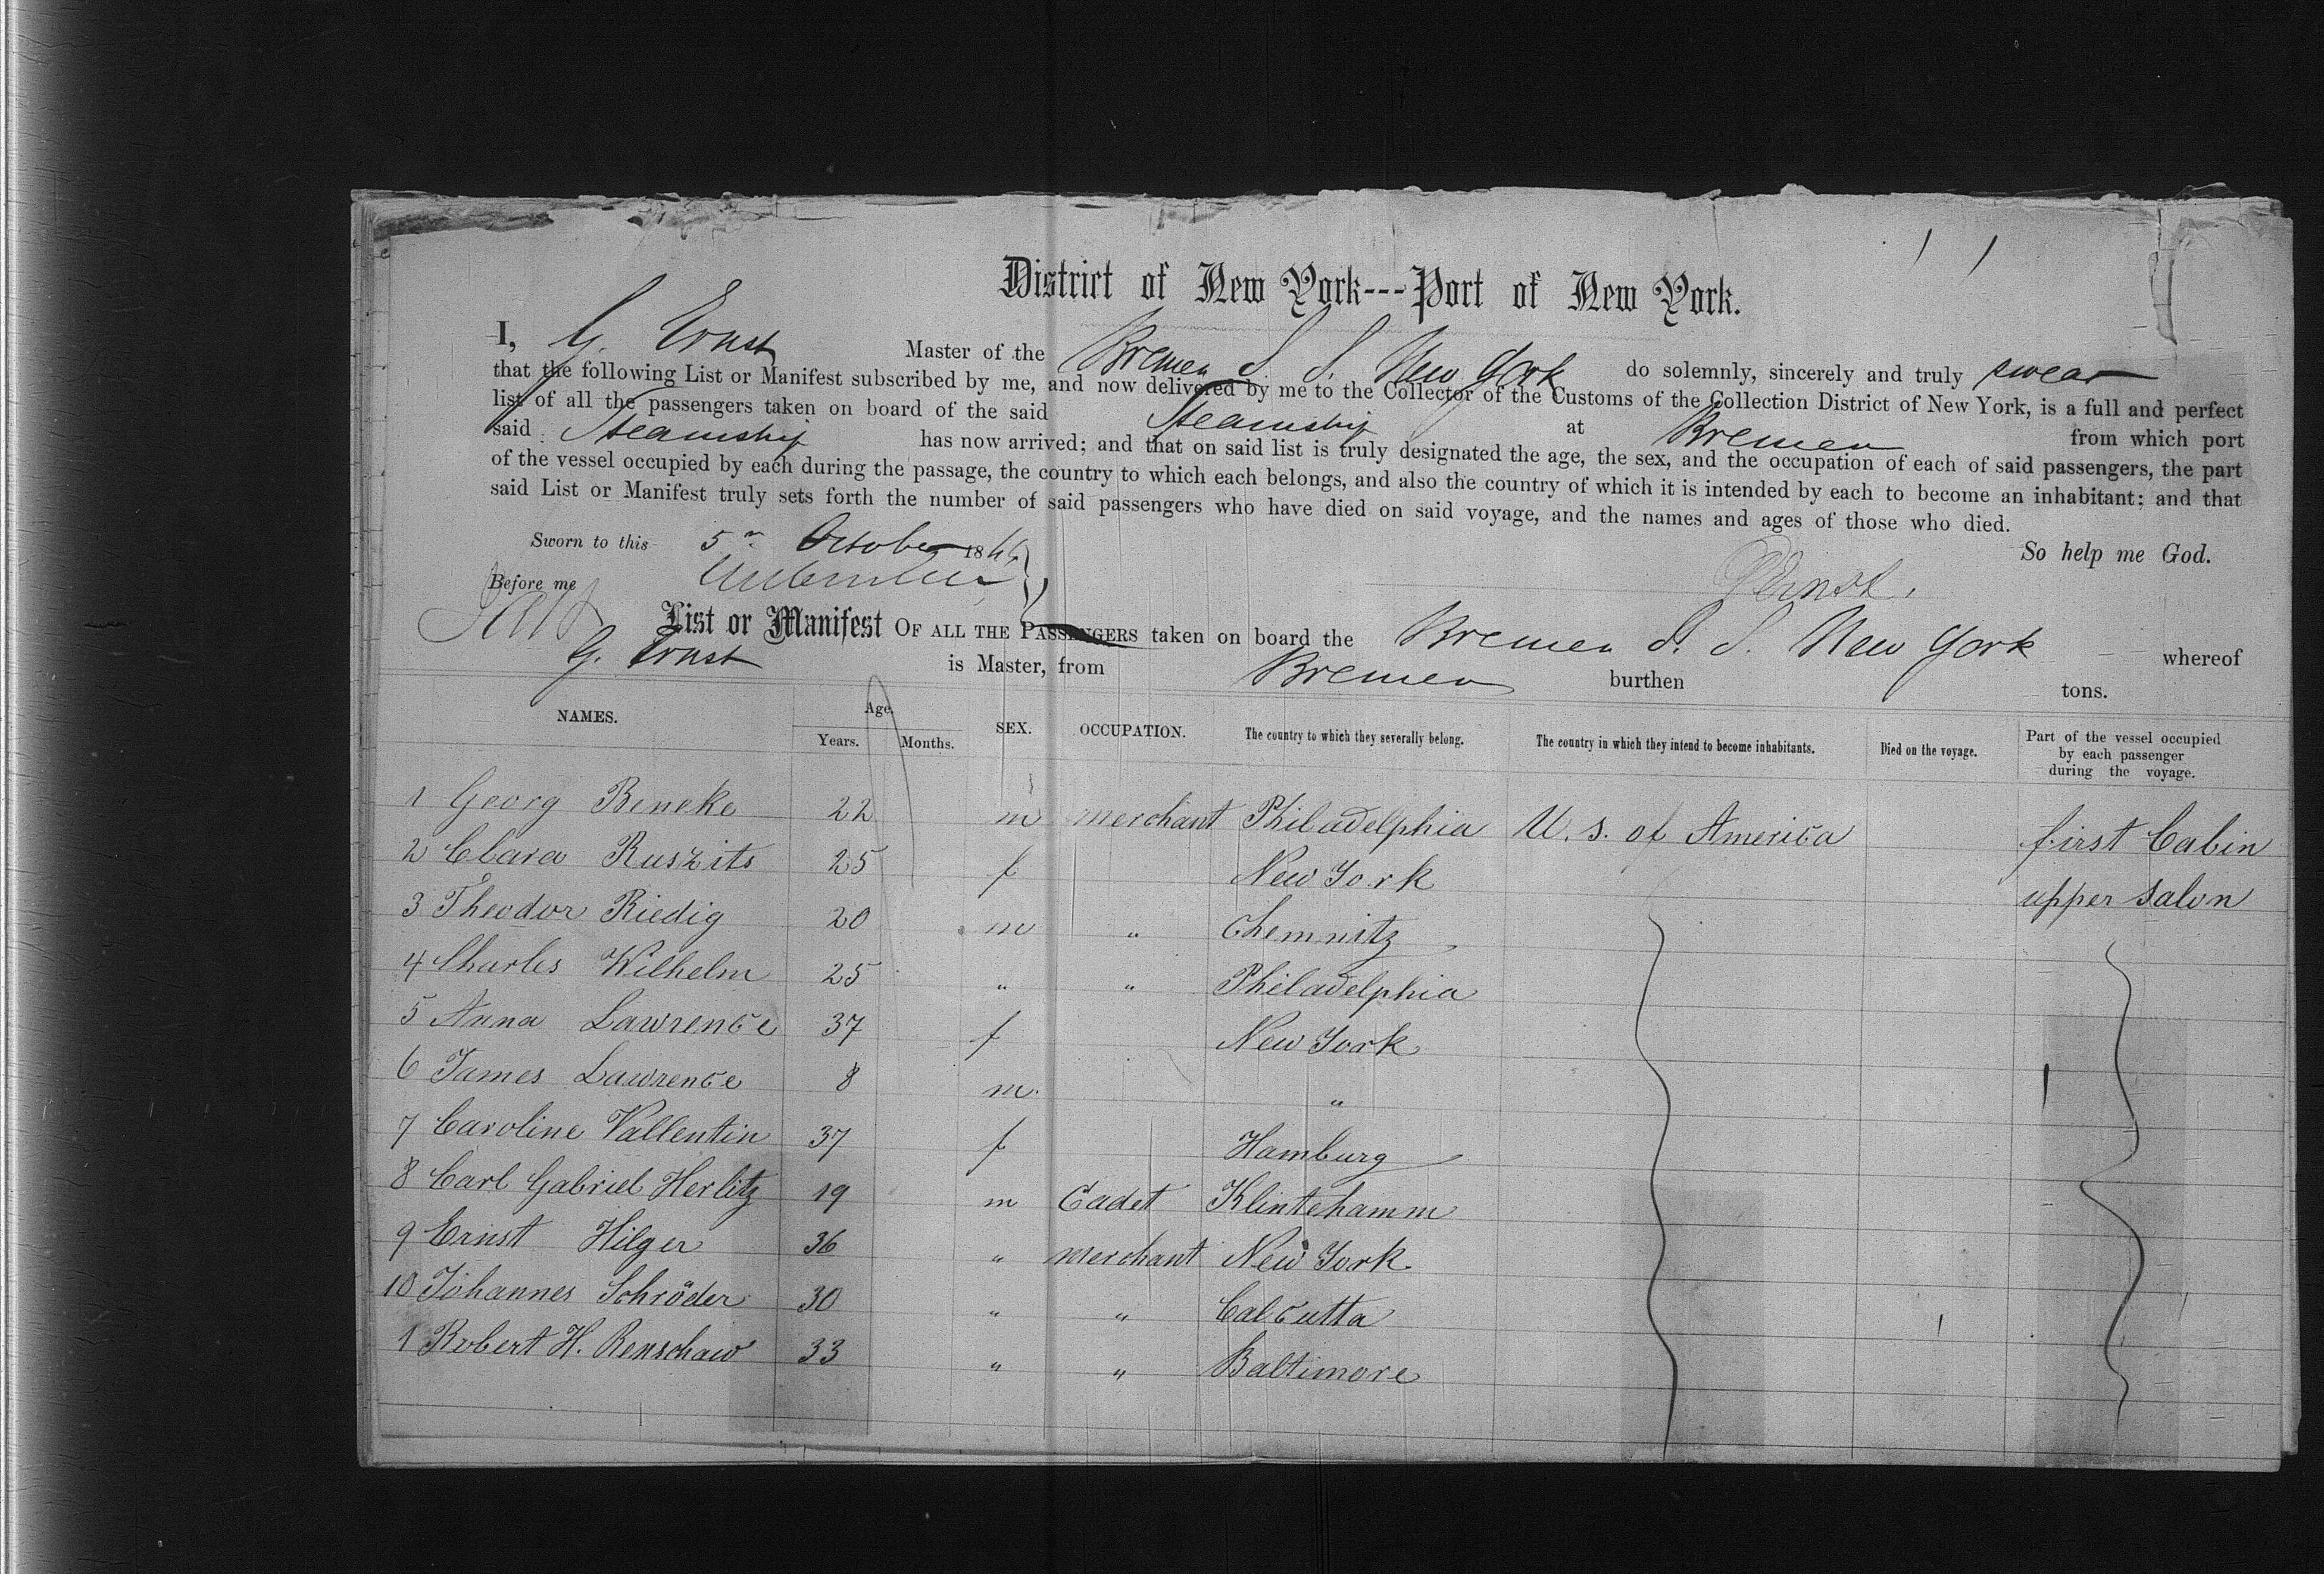 District of New York---Port of New York.
I, G. Ernst Master of the Bremen S. S. New York do solemnly, sincerely and truly swear
that the following List or Manifest subscribed by me, and now delivered by me to the Collector of the Customs of the Collection District of New York, is a full and perfect
list of all the passengers taken on board of the said Steamship at Bremen from which port
said Steamship has now arrived; and that on said list is truly designated the age, the sex, and the occupation of each of said passengers, the part
of the vessel occupied by each during the passage, the country to which each belongs, and also the country of which it is intended by each to become an inhabitant; and that
said List or Manifest truly sets forth the number of said passengers who have died on said voyage, and the names and ages of those who died.
So help me God.
Sworn to this 5 October 186
Before me
GErnst.
List or Manifest OF ALL THE PASSENGERS taken on board the Bremen S. S. New York whereof
G. Ernst is Master, from Bremen burthen tons.
NAMES. Age. SEX. OCCUPATION. The country to which they severally belong. The country in which they intend to become inhabitants. Died on the voyage. Part of the vessel occupied by each passenger during the voyage.
Years. Months.
1 Georg Beneke 22 m merchant Philadelphia U. S. of America first Cabin
2 Clara Ruszits 25 f New York upper salon
3 Theodor Riedig 20 m " Chemnitz
4 Charles Wilhelm 25 " " Philadelphia
5 Anna Lawrence 37 f New York
6 James Lawrence 8 m. "
7 Caroline Vallentin 37 f Hamburg
8 Carl Gabriel Herlitz 19 m Cadet Klintehamm
9 Ernst Hilger 36 " merchant New York
10 Johannes Schröder 30 " " Calcutta
1 Robert H. Renschaw 33 " " Baltimore